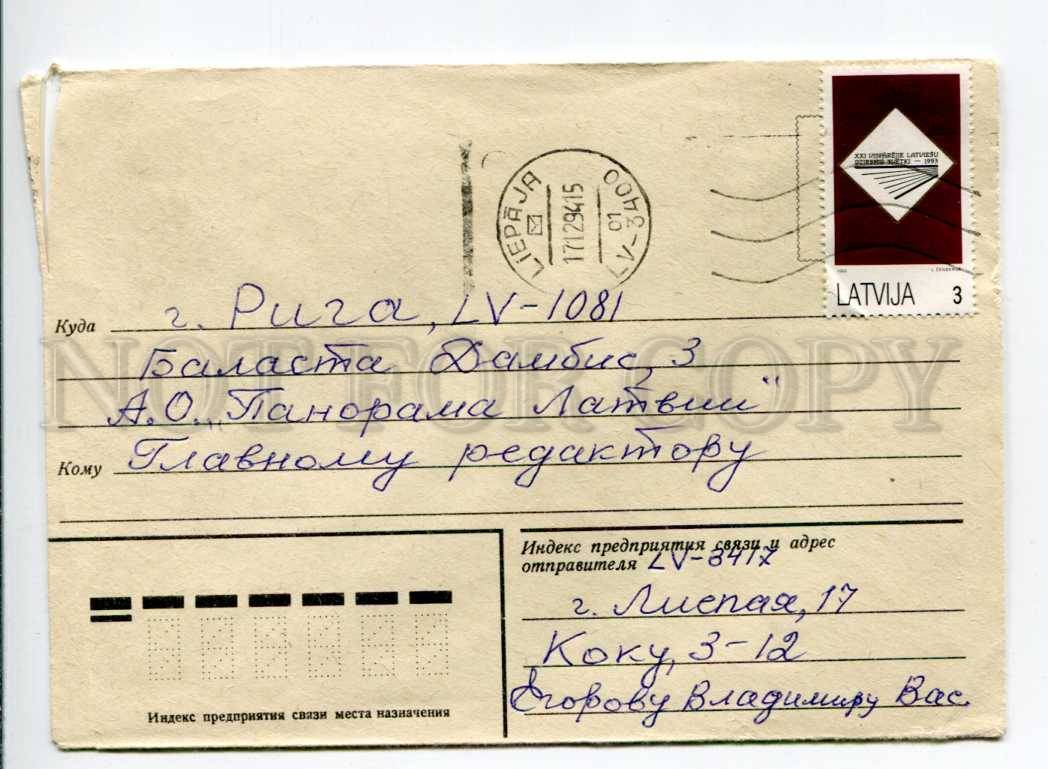 XXI VISPĀRĒJIE LATVIEŠU
DZIESMU SVĒTKI — 1993
LATVIJA 3
LIEPĀJA
17.12.94.15
01
LV-3400
Куда г. Рига, LV-1081
Баласта Дамбис, 3
А.О. „Панорама Латвии"
Кому Главному редактору
NOT FOR COPY
Индекс предприятия связи и адрес
отправителя LV-3417
г. Лиепая, 17
Коку, 3-12
Егорову Владимиру Вас.
Индекс предприятия связи места назначения